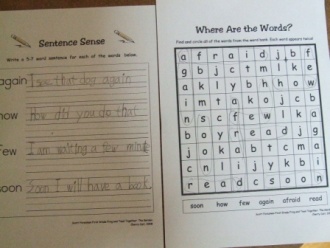 Sentence Sense
Write a 5-7 word sentence for each of the words below.
again I see that dog again
how How did you do that
few I am waiting a few minits
soon Soon I will have a book.
Where Are the Words?
Find and circle all of the words from the word bank. Each word appears twice!
a f r a i d j b f
g b j c t m l k e
a k l y b h h o w
i m t a k o j c b
n s c f e w l k a
b o y r e a d j g
j o k a b t c m a
c n l i j y k b i
r e a d c s o o n
soon how few again afraid read